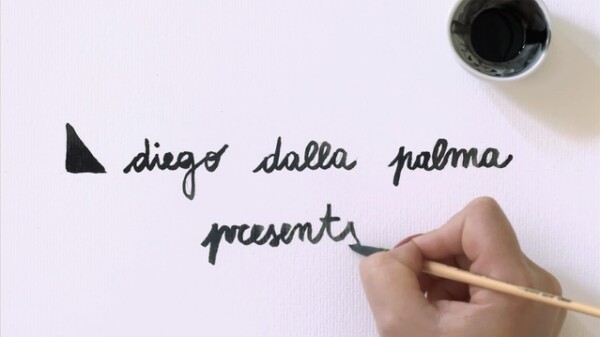 diego dalla palma
presents